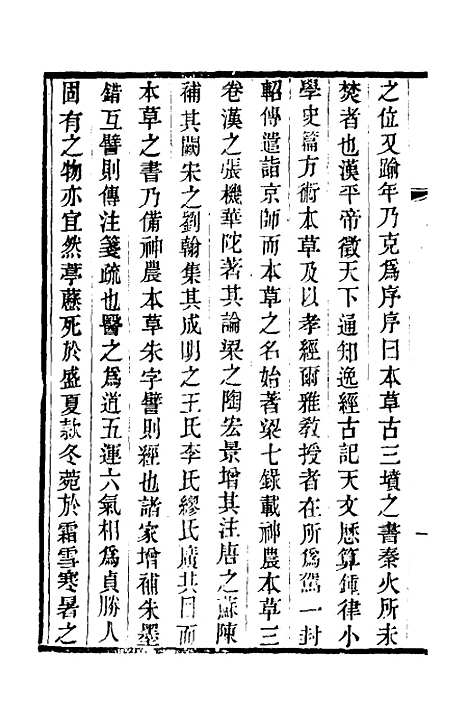 之位又踰年乃克爲序序曰本草古三墳之書秦火所未
焚者也漢平帝徵天下通知逸經古記天文厯算鍾律小
學史篇方術本草及以孝經爾雅敎授者在所爲駕一封
軺傳遣詣京師而本草之名始著梁七錄載神農本草三
卷漢之張機華陀著其論梁之陶宏景增其注唐之蘇陳
補其闕宋之劉翰集其成明之王氏李氏繆氏廣其目而
本草之書乃備神農本草朱字譬則經也諸家增補朱墨
錯互譬則傳注箋疏也醫之爲道五運六氣相爲貞勝人
固有之物亦宜然葶藶死於盛夏款冬菀於霜雪寒暑之